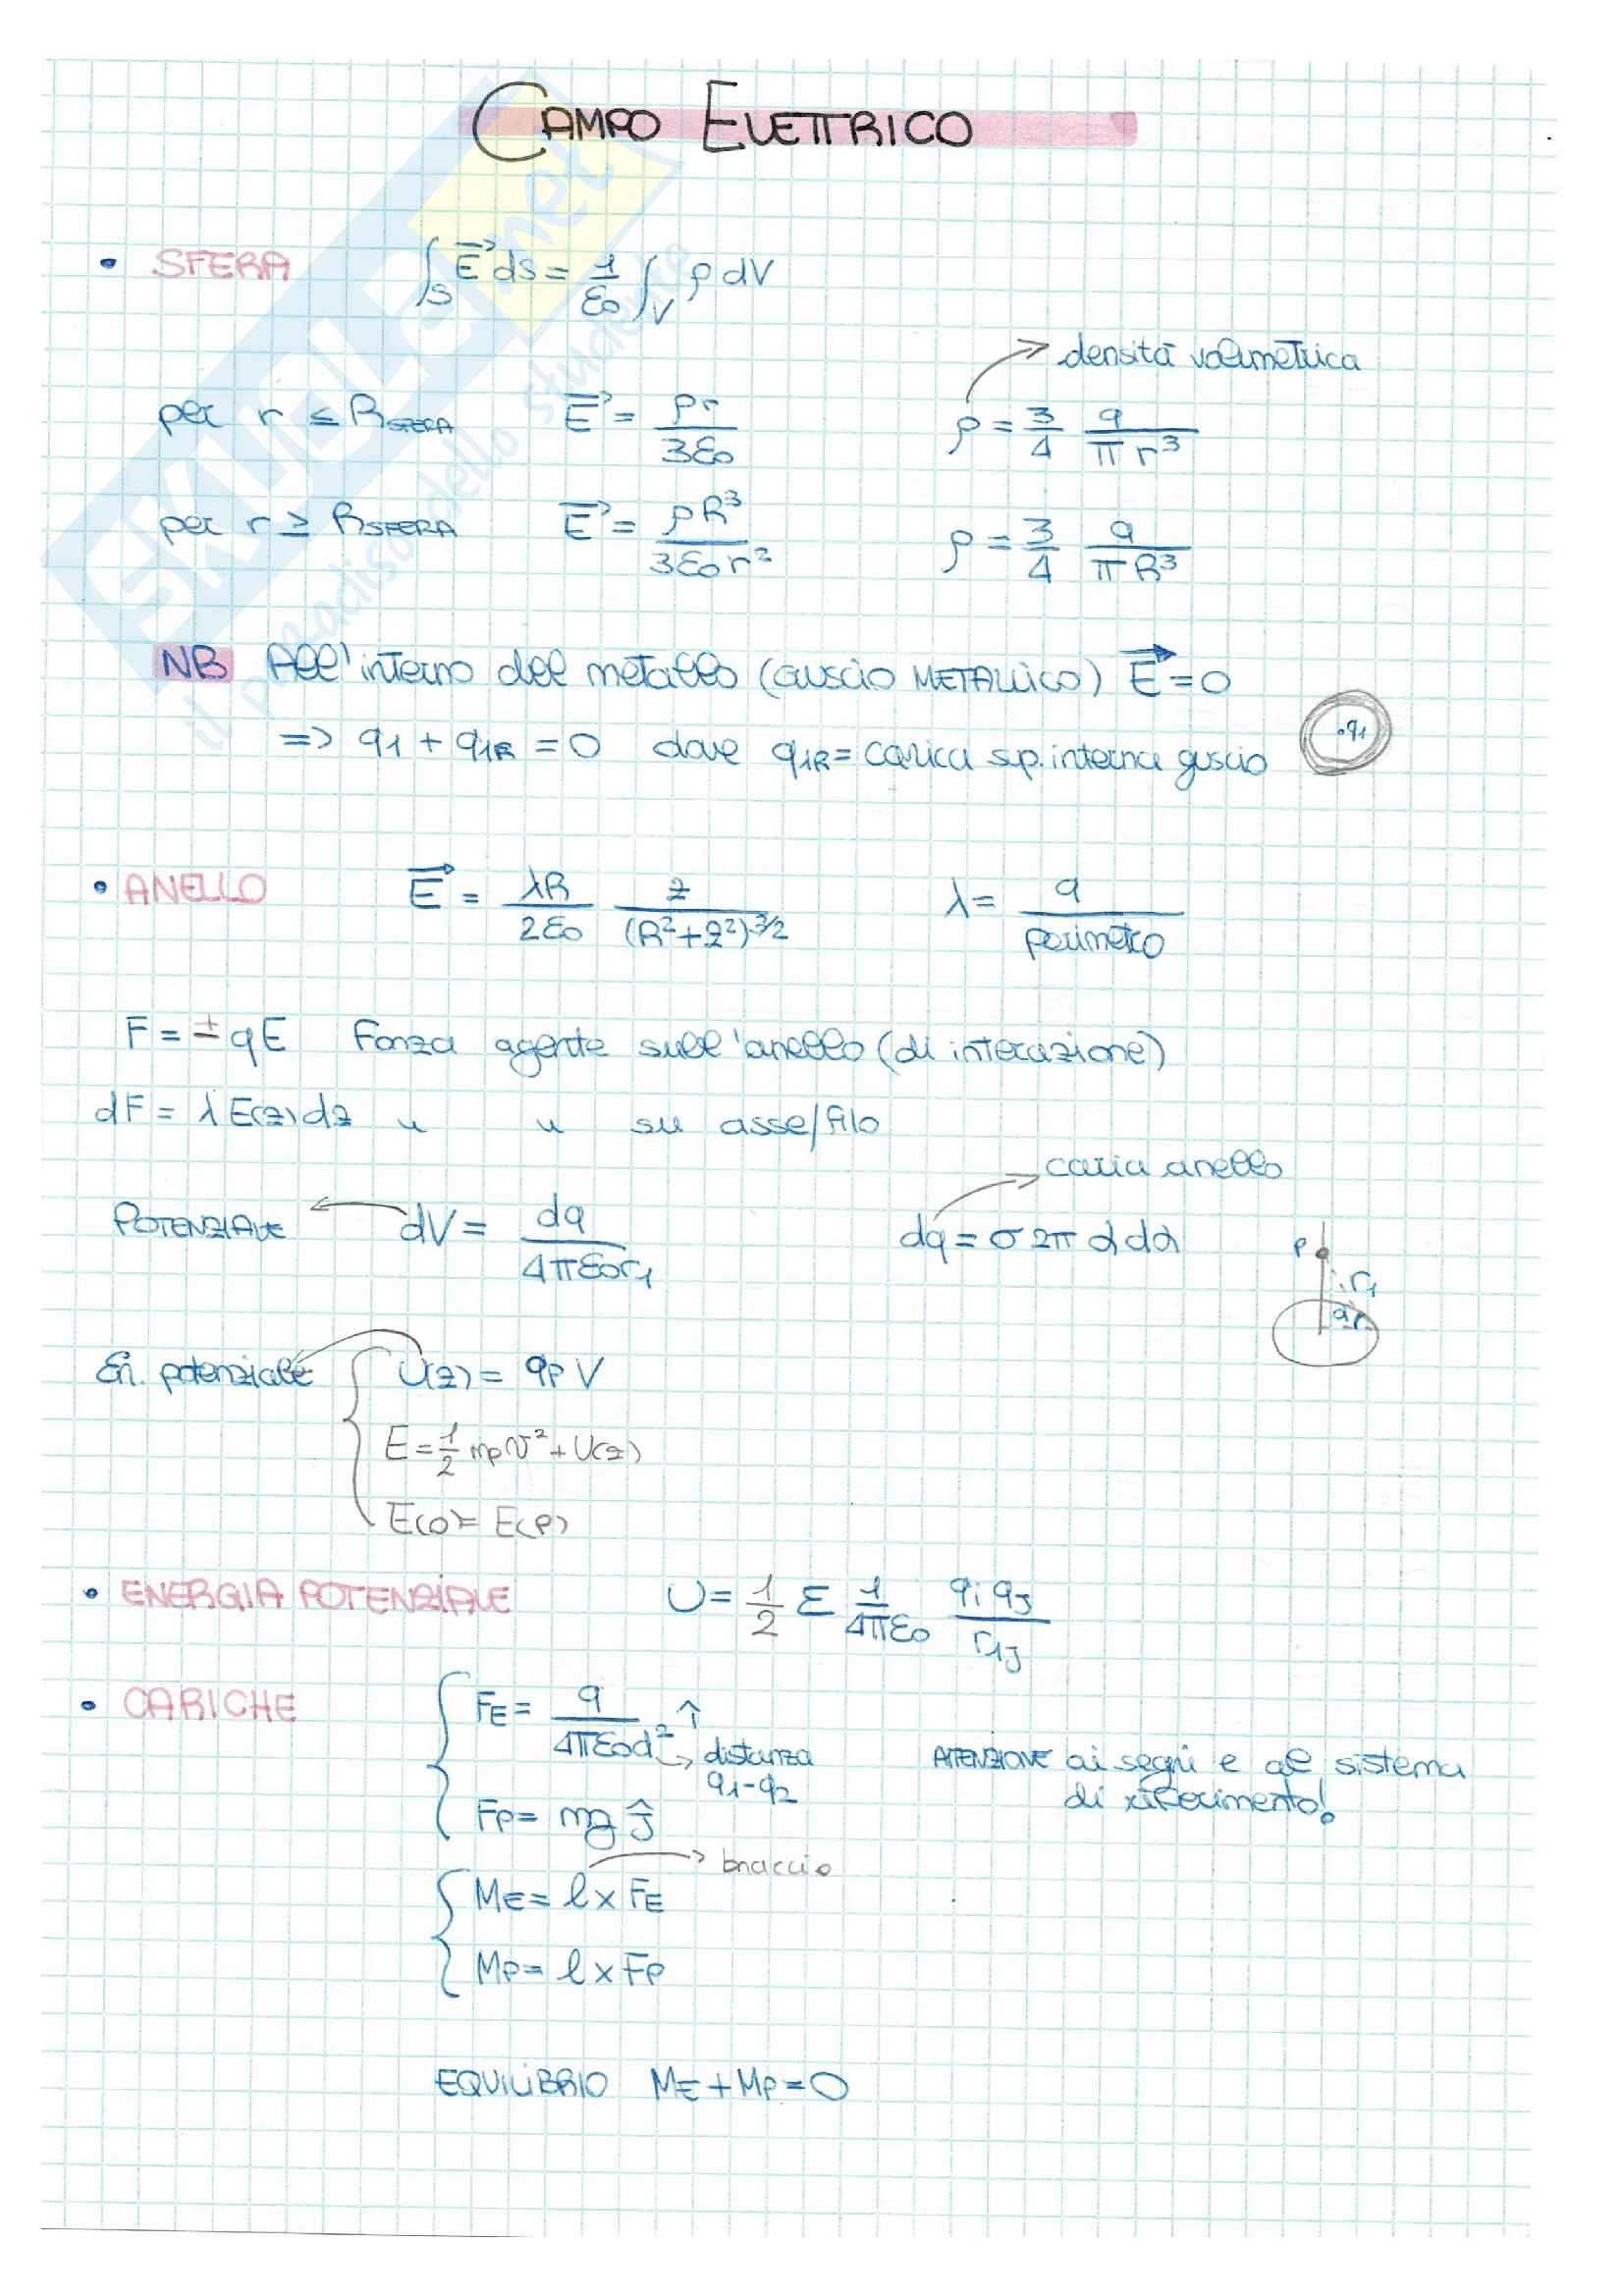 CAMPO ELETTRICO
• SFERA ∫_S E⃗ dS = 1/ε₀ ∫_V ρ dV
densità volumetrica
per r ≤ R_SFERA E⃗ = ρr / 3ε₀ ρ = 3/4 q / πr³
per r ≥ R_SFERA E⃗ = ρR³ / 3ε₀r² ρ = 3/4 q / πR³
NB All'interno del metallo (GUSCIO METALLICO) E⃗ = 0
=> q1 + q1R = 0 dove q1R = carica sup. interna guscio
.q1
• ANELLO E⃗ = λR / 2ε₀ z / (R²+z²)^3/2 λ = q / perimetro
F = ± qE Forza agente sull'anello (di interazione)
dF = λ E(z) dz " " su asse/filo
carica anello
POTENZIALE dV = dq / 4πε₀r1 dq = σ 2π α dα
P
r1
En. potenziale U(z) = qp V
E = 1/2 mp v² + U(z)
E(0) = E(P)
• ENERGIA POTENZIALE U = 1/2 Σ 1/4πε₀ qi qJ / r1J
• CARICHE FE = q / 4πε₀d² î
distanza
q1-q2
ATTENZIONE ai segni e al sistema
di riferimento!
FP = mg ĵ
braccio
ME = l x FE
MP = l x FP
EQUILIBRIO ME + MP = 0
SKUOLA.net
il paradiso dello studente